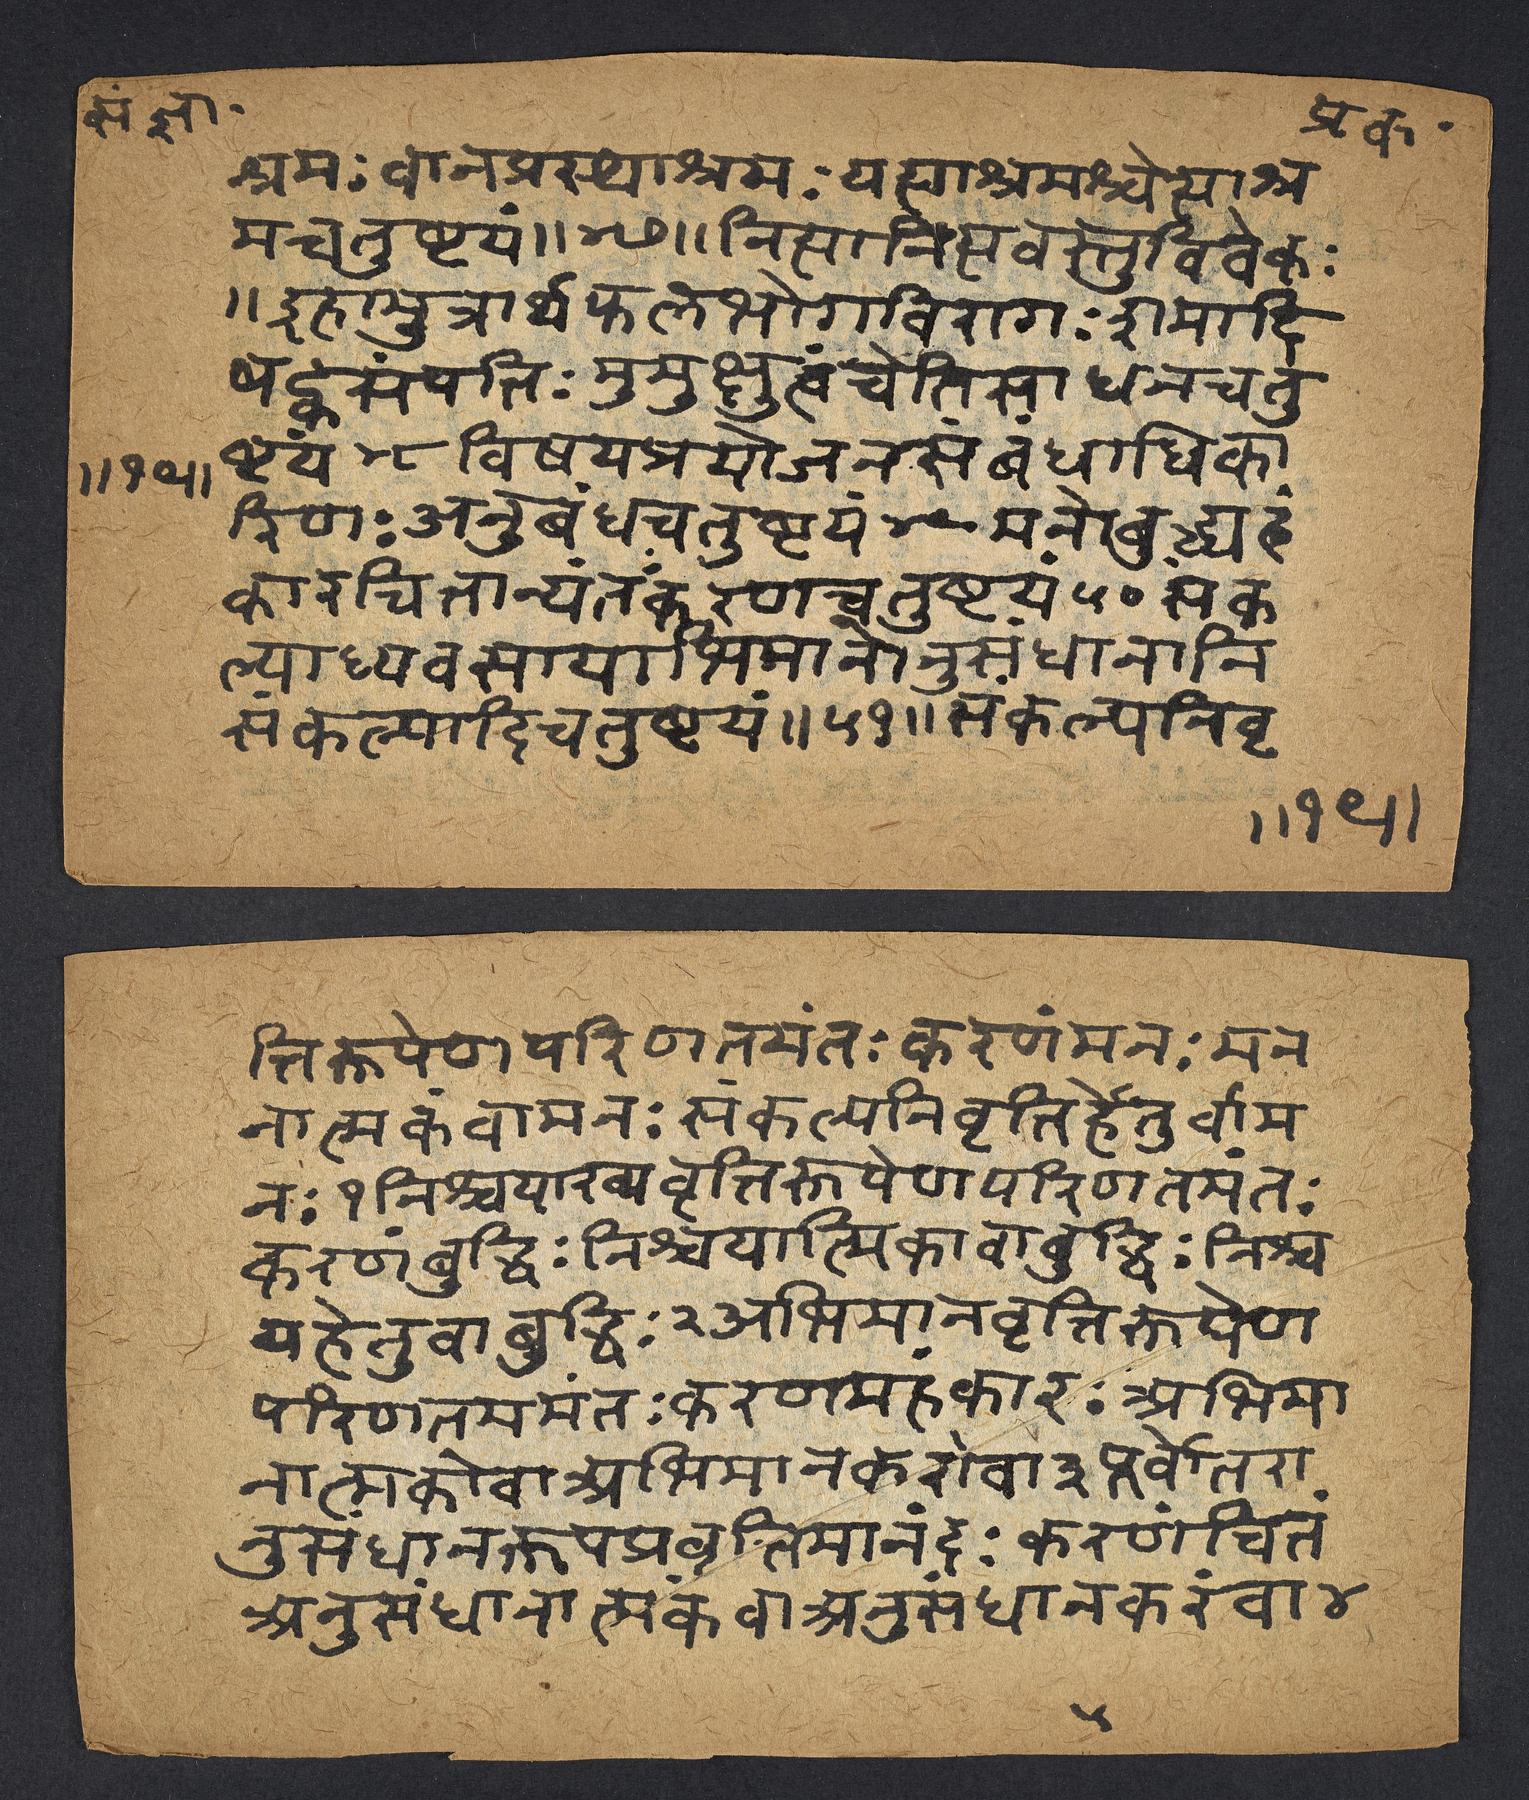 संज्ञा॰
प्रक॰
श्रमः वानप्रस्थाश्रमः यत्याश्रमश्चेत्याश्र
मचतुष्टयं॥४७॥नित्यानित्यवस्तुविवेकः
॥इहामुत्रार्थफलभोगविरागः शमादि
षट्कसंपत्तिः मुमुक्षुत्वंचेतिसाधनचतु
ष्टयं ४८ विषयप्रयोजनसंबंधाधिका
॥१५॥
रिणः अनुबंधचतुष्टयं ४९ मनोबुद्ध्यहं
कारचित्तान्यंतःकरणचतुष्टयं ५० संक
ल्पाध्यवसायाभिमानोनुसंधानानि
संकल्पादिचतुष्टयं॥५१॥संकल्पनिवृ
॥१५।
त्तिरूपेणपरिणतमंतः करणंमनः मन
नात्मकंवामनः संकल्पनिवृत्तिर्हेतुर्वाम
नः १ निश्चयाख्यवृत्तिरूपेणपरिणतमंतः
करणंबुद्धिः निश्चयात्मिकावाबुद्धिः निश्च
यहेतुवाबुद्धिः २ अभिमानवृत्तिरूपेण
परिणतममंतः करणमहंकारः अभिमा
नात्मकोवाअभिमानकरोवा ३ पूर्वोतरा
नुसंधानरूपप्रवृत्तिमानंदः करणंचितं
अनुसंधानात्मकंवाअनुसंधानकरंवा ४